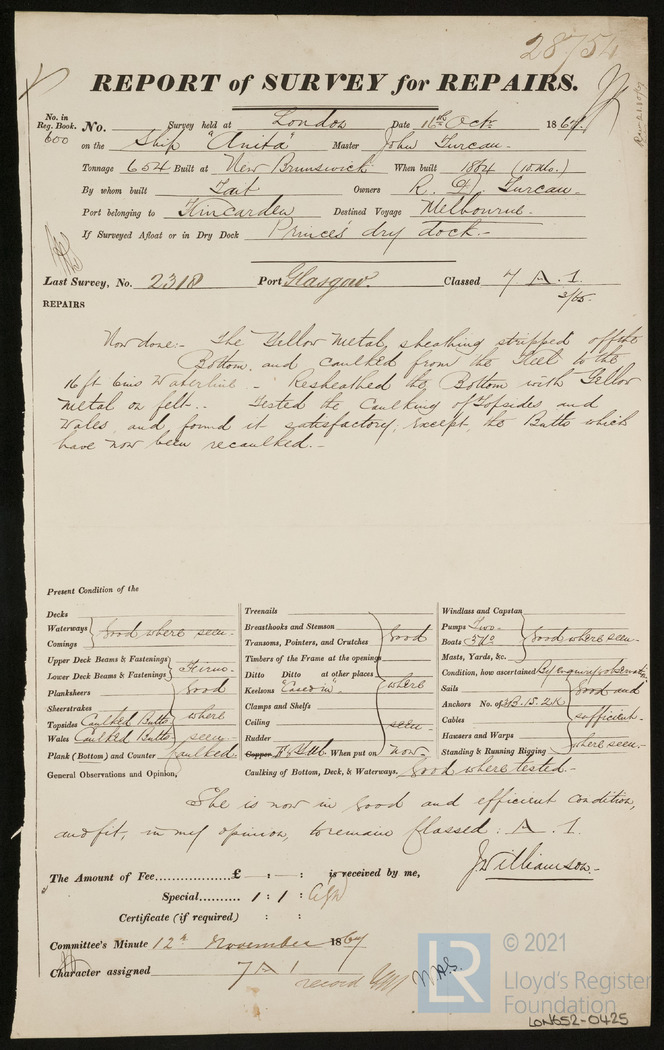 28754
REPORT of SURVEY for REPAIRS.
No. in Reg. Book. No. Survey held at London Date 16th Octr 1867.
600 on the Ship "Anita" Master John Turcan.
Tonnage 654 Built at New Brunswick When built 1864 (10 Mo.)
By whom built Tait Owners R. D. Turcan
Port belonging to Kincarden Destined Voyage Melbourne.
If Surveyed Afloat or in Dry Dock Princes dry dock.
Last Survey, No. 2318 Port Glasgow. Classed 7 A. 1.
3/65
REPAIRS
Now done:- The Yellow Metal sheathing stripped off the
Bottom, and caulked from the Keel to the
16 ft 6ins Waterline. - Resheathed the Bottom with Yellow
Metal on felt. Tested the Caulking of Topsides and
Wales, and found it satisfactory, Except the Butts which
have now been recaulked.
Present Condition of the
Decks
Waterways
Comings
Good where seen
Upper Deck Beams & Fastenings
Lower Deck Beams & Fastenings
Planksheers Good
Sheerstrakes
Topsides Caulked Butts where
Wales Caulked Butts seen
Plank (Bottom) and Counter Caulked.
General Observations and Opinion,
Treenails
Breasthooks and Stemson
Transoms, Pointers, and Crutches
Good
Timbers of the Frame at the openings
Ditto Ditto at other places
where
Keelsons "Cased in"
Clamps and Shelfs
Ceiling
seen
Rudder
Copper When put on now
Caulking of Bottom, Deck, & Waterways, Good where tested.
Windlass and Capstan
Pumps Two
Boats
Good where seen
Masts, Yards, &c.
Condition, how ascertained By enquiry & observation
Sails Good and
Anchors No. of 3B. 1S. 2K
Cables sufficient
Hawsers and Warps
Standing & Running Rigging where seen
She is now in Good and efficient Condition,
and fit, in my opinion, to remain Classed: A. 1.
J. Williamson
The Amount of Fee £ : - : is received by me,
Special 1 : 1 :
Certificate (if required) : :
Committee's Minute 12th November 1867
Character assigned 7 A 1
record
© 2021
LR
Lloyd's Register
Foundation
LON652-0425